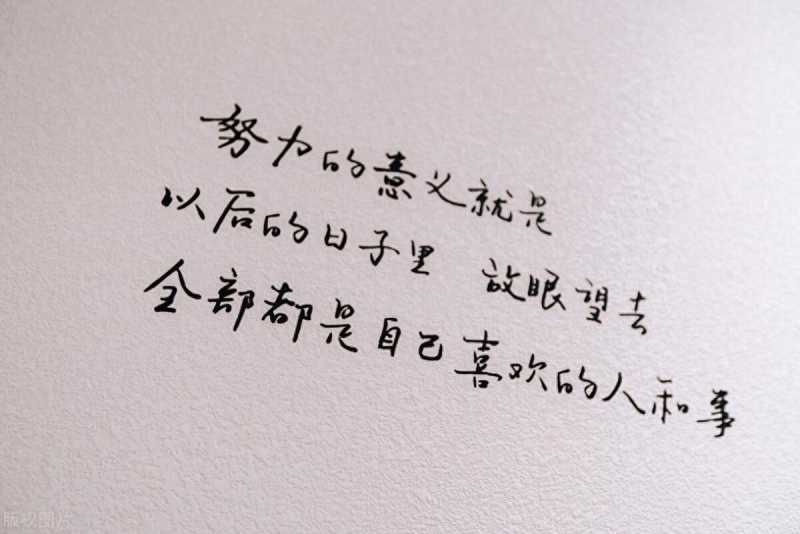 努力的意义就是
以后的日子里 放眼望去
全部都是自己喜欢的人和事
版权图片